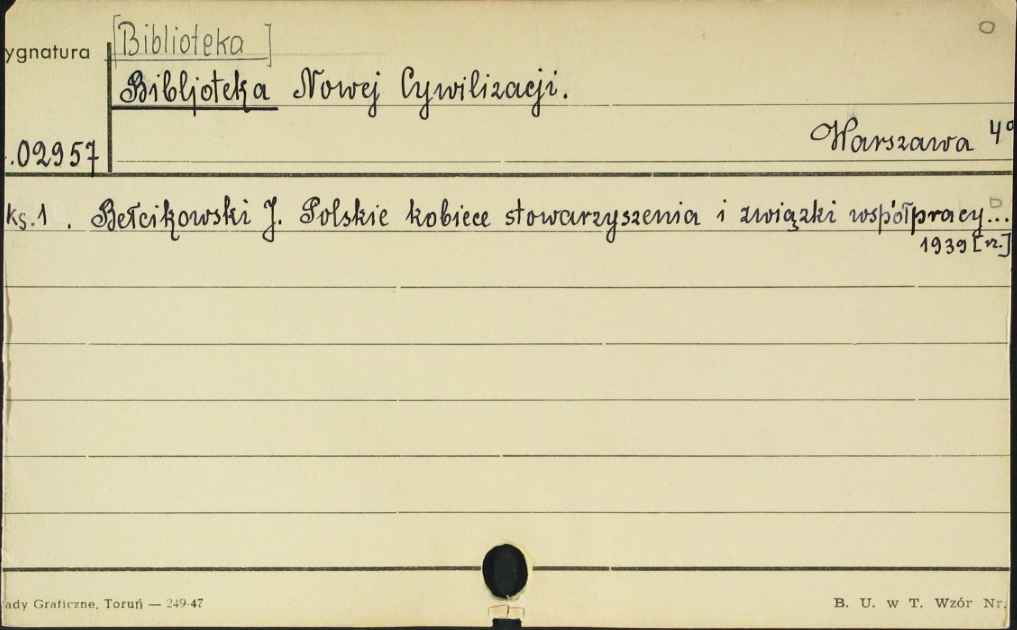 [Biblioteka]
ygnatura
Bibljoteka Nowej Cywilizacji.
Warszawa 4º
.02957
ks.1. Bełcikowski J. Polskie kobiece stowarzyszenia i związki współpracy...
1939 [rz.]
ady Graficzne, Toruń — 249-47
B. U. w T. Wzór Nr.